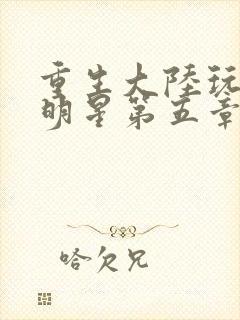 重生大陸玩
明星第五章
哈欠兄